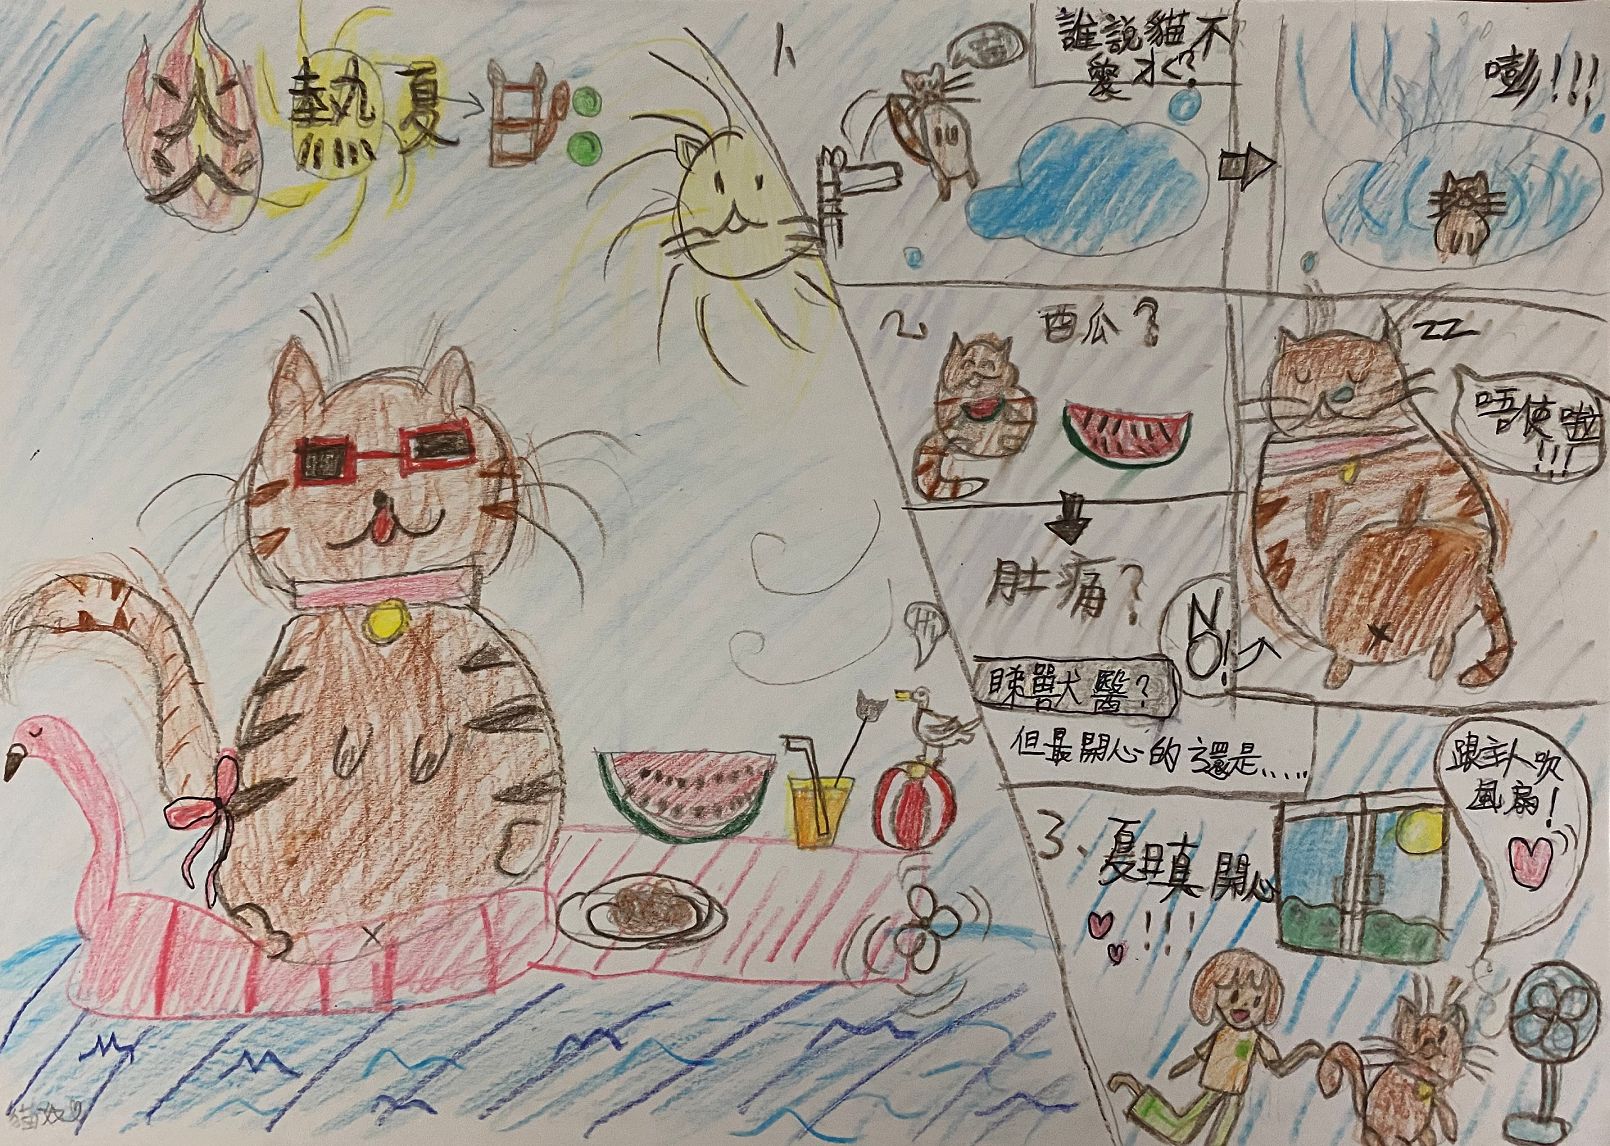 炎熱夏日:
1.
誰說貓不
愛水?
嘭!!!
2
西瓜?
zz
唔使啦
!!!
肚痛?
NO!
Hi
睇獸醫?
但最開心的還是......
3.
夏日真開心
!!!
跟主人吹
風扇!